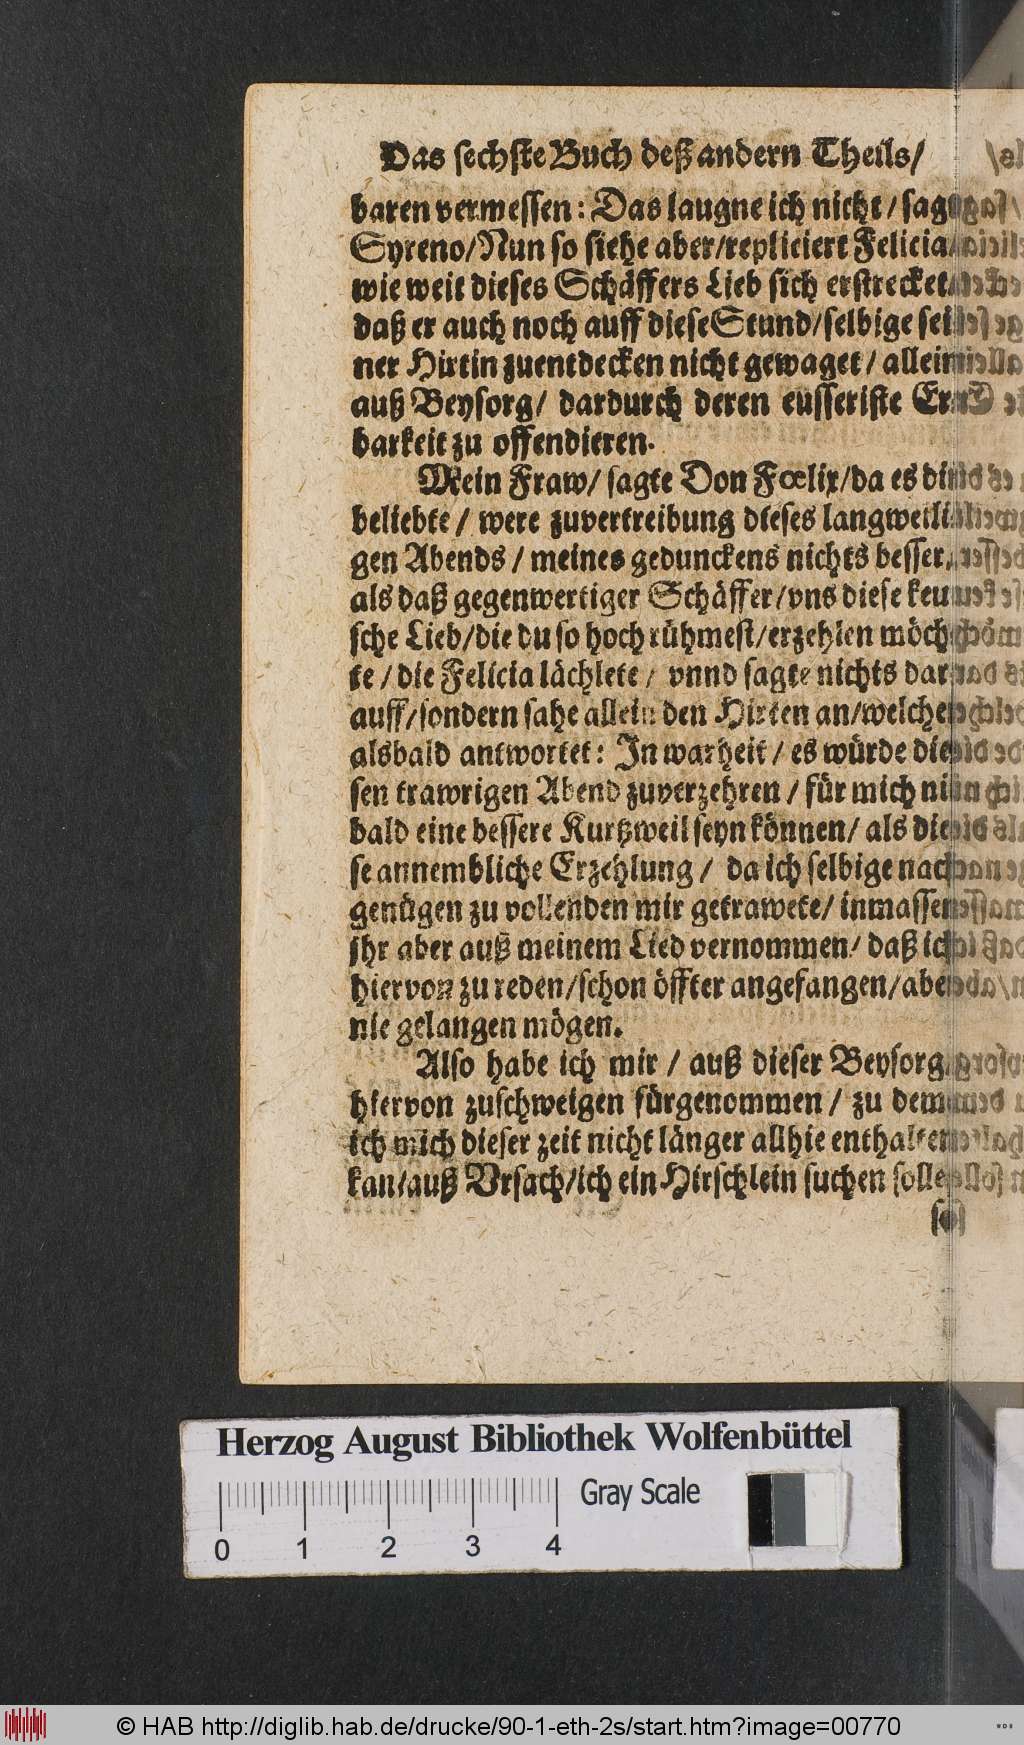 Das sechste Buch deß andern Theils/
baren vermessen: Das laugne ich nicht/ sagt
Syreno/Nun so siehe aber/repliciert Felicia/
wie weit dieses Schäffers Lieb sich erstrecket/
daß er auch noch auff diese Stund/selbige sei-
ner Hirtin zuentdecken nicht gewaget/ allein
auß Beysorg/ dardurch deren eusseriste Er-
barkeit zu offendieren.
Mein Fraw/ sagte Don Fœlix/da es dir
beliebte/ were zuvertreibung dieses langweili-
gen Abends/ meines gedunckens nichts besser,
als daß gegenwertiger Schäffer/vns diese keu-
sche Lieb/die du so hoch rühmest/erzehlen möch-
te/ die Felicia lächlete/ vnnd sagte nichts dar-
auff/sondern sahe allein den Hirten an/welcher
alsbald antwortet: In warheit/ es würde die-
sen trawrigen Abend zuverzehren/ für mich nit
bald eine bessere Kurtzweil seyn können/ als die-
se annembliche Erzehlung/ da ich selbige nach
genügen zu vollenden mir getrawete/ inmassen
jhr aber auß meinem Lied vernommen/ daß ich
hiervon zu reden/schon öffter angefangen/aber
nie gelangen mögen.
Also habe ich mir/ auß dieser Beysorg/
hiervon zuschweigen fürgenommen/ zu dem
ich mich dieser zeit nicht länger allhie enthalten
kan/auß Vrsach/ich ein Hirschlein suchen solle/
Herzog August Bibliothek Wolfenbüttel
Gray Scale
0 1 2 3 4
© HAB http://diglib.hab.de/drucke/90-1-eth-2s/start.htm?image=00770